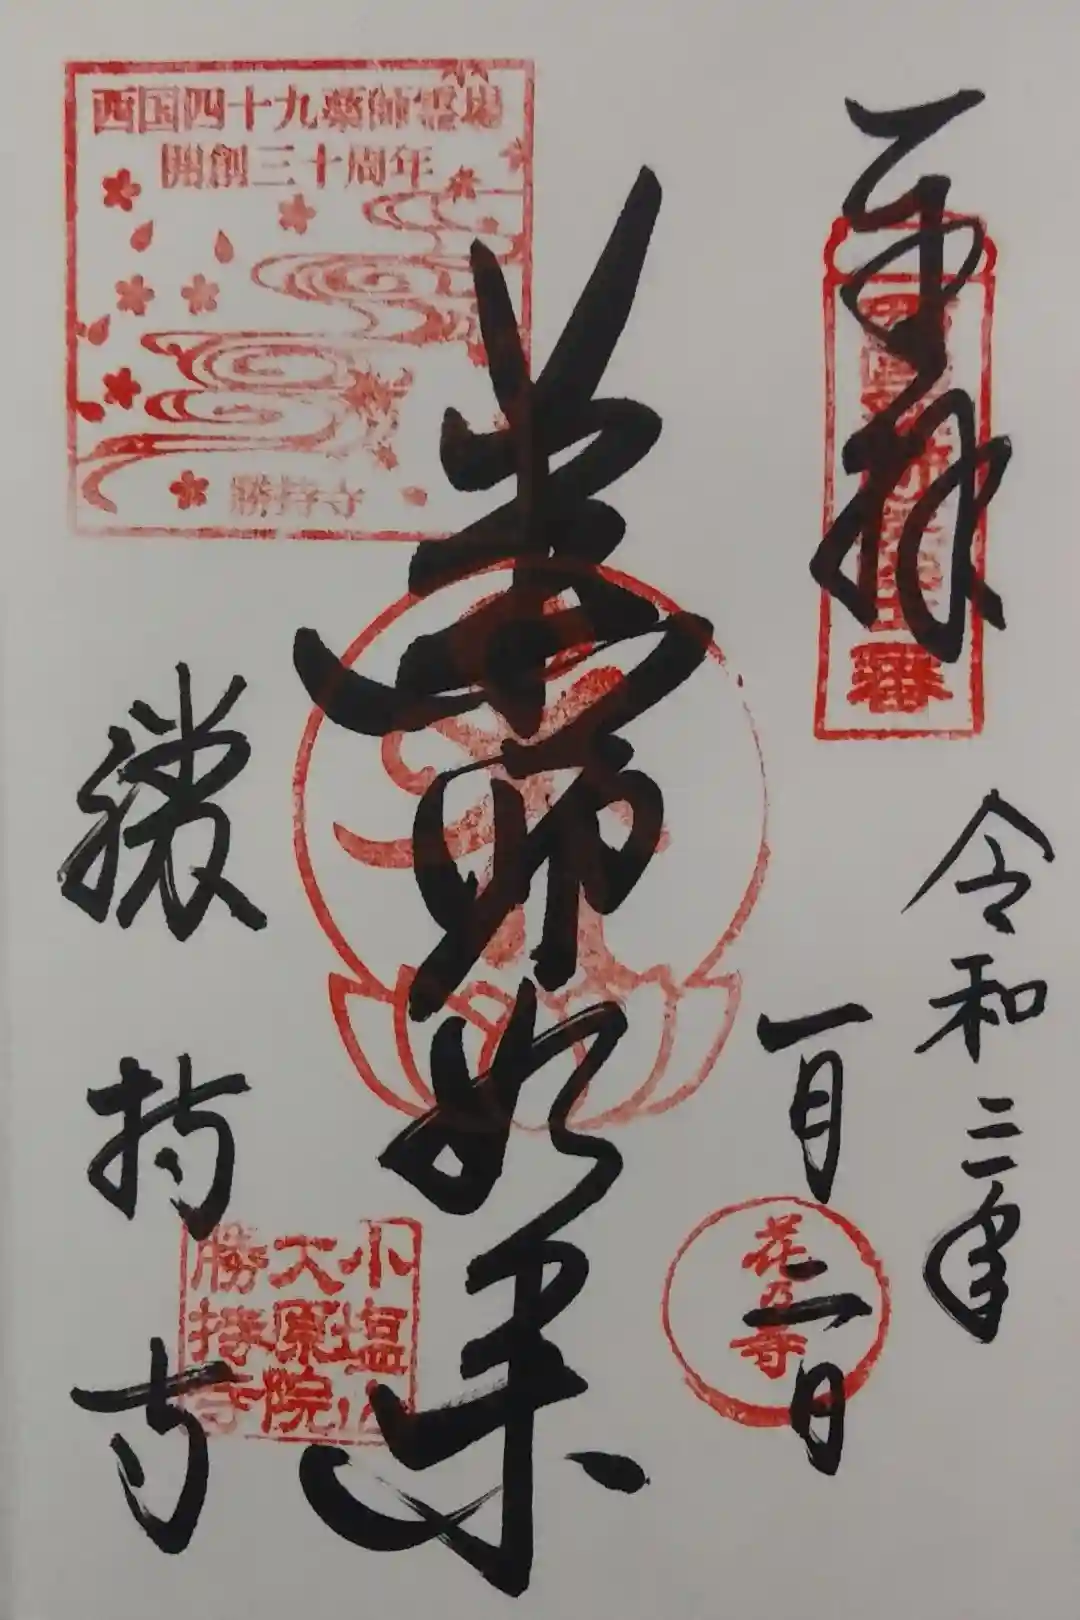 奉拝
番
令和三年
一月二日
花乃寺
西国四十九薬師霊場
開創三十周年
勝持寺
薬師如来
小塩山
大原院
勝持寺
勝持寺